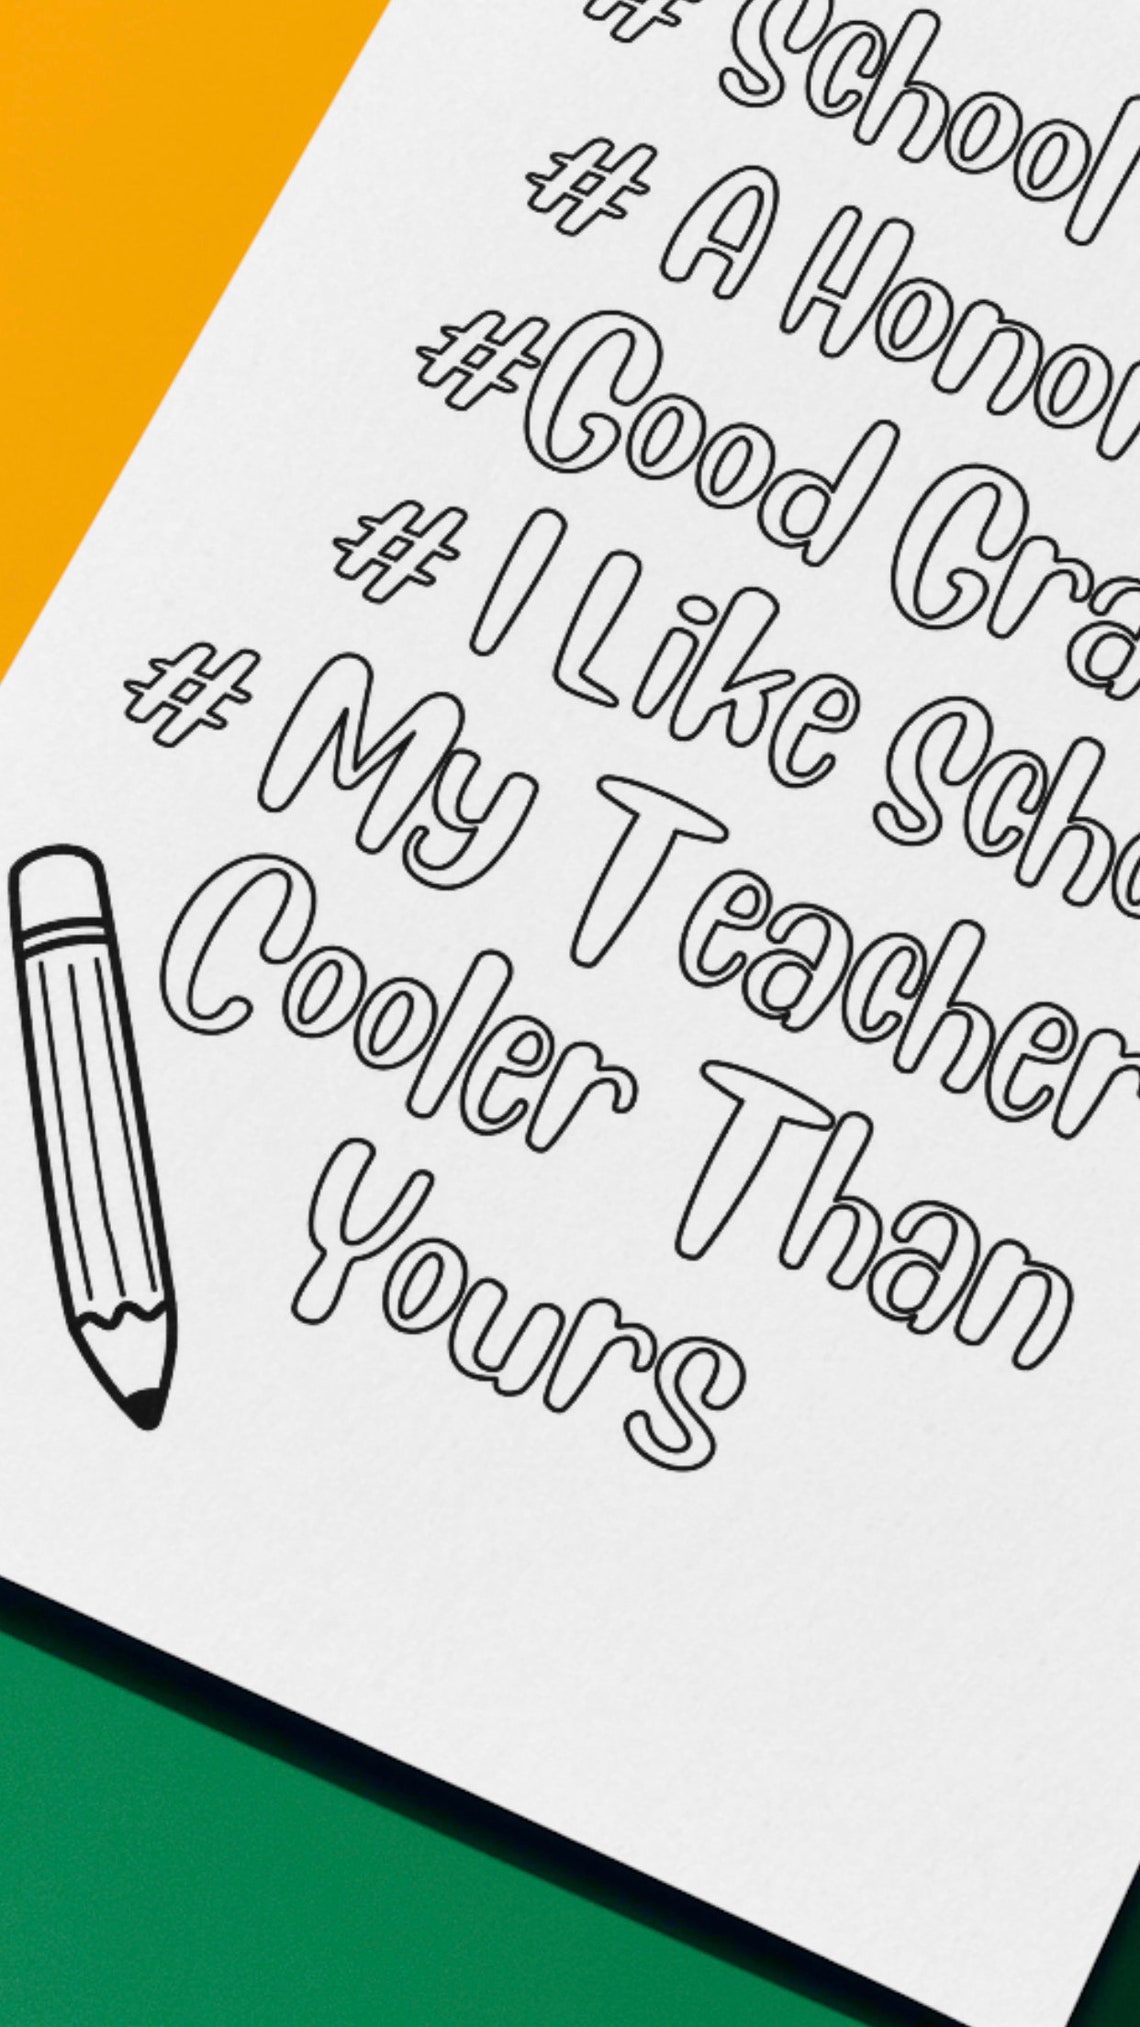 # School
# A Honor
#Good Gra
# I Like Scho
# My Teacher
Cooler Than
Yours